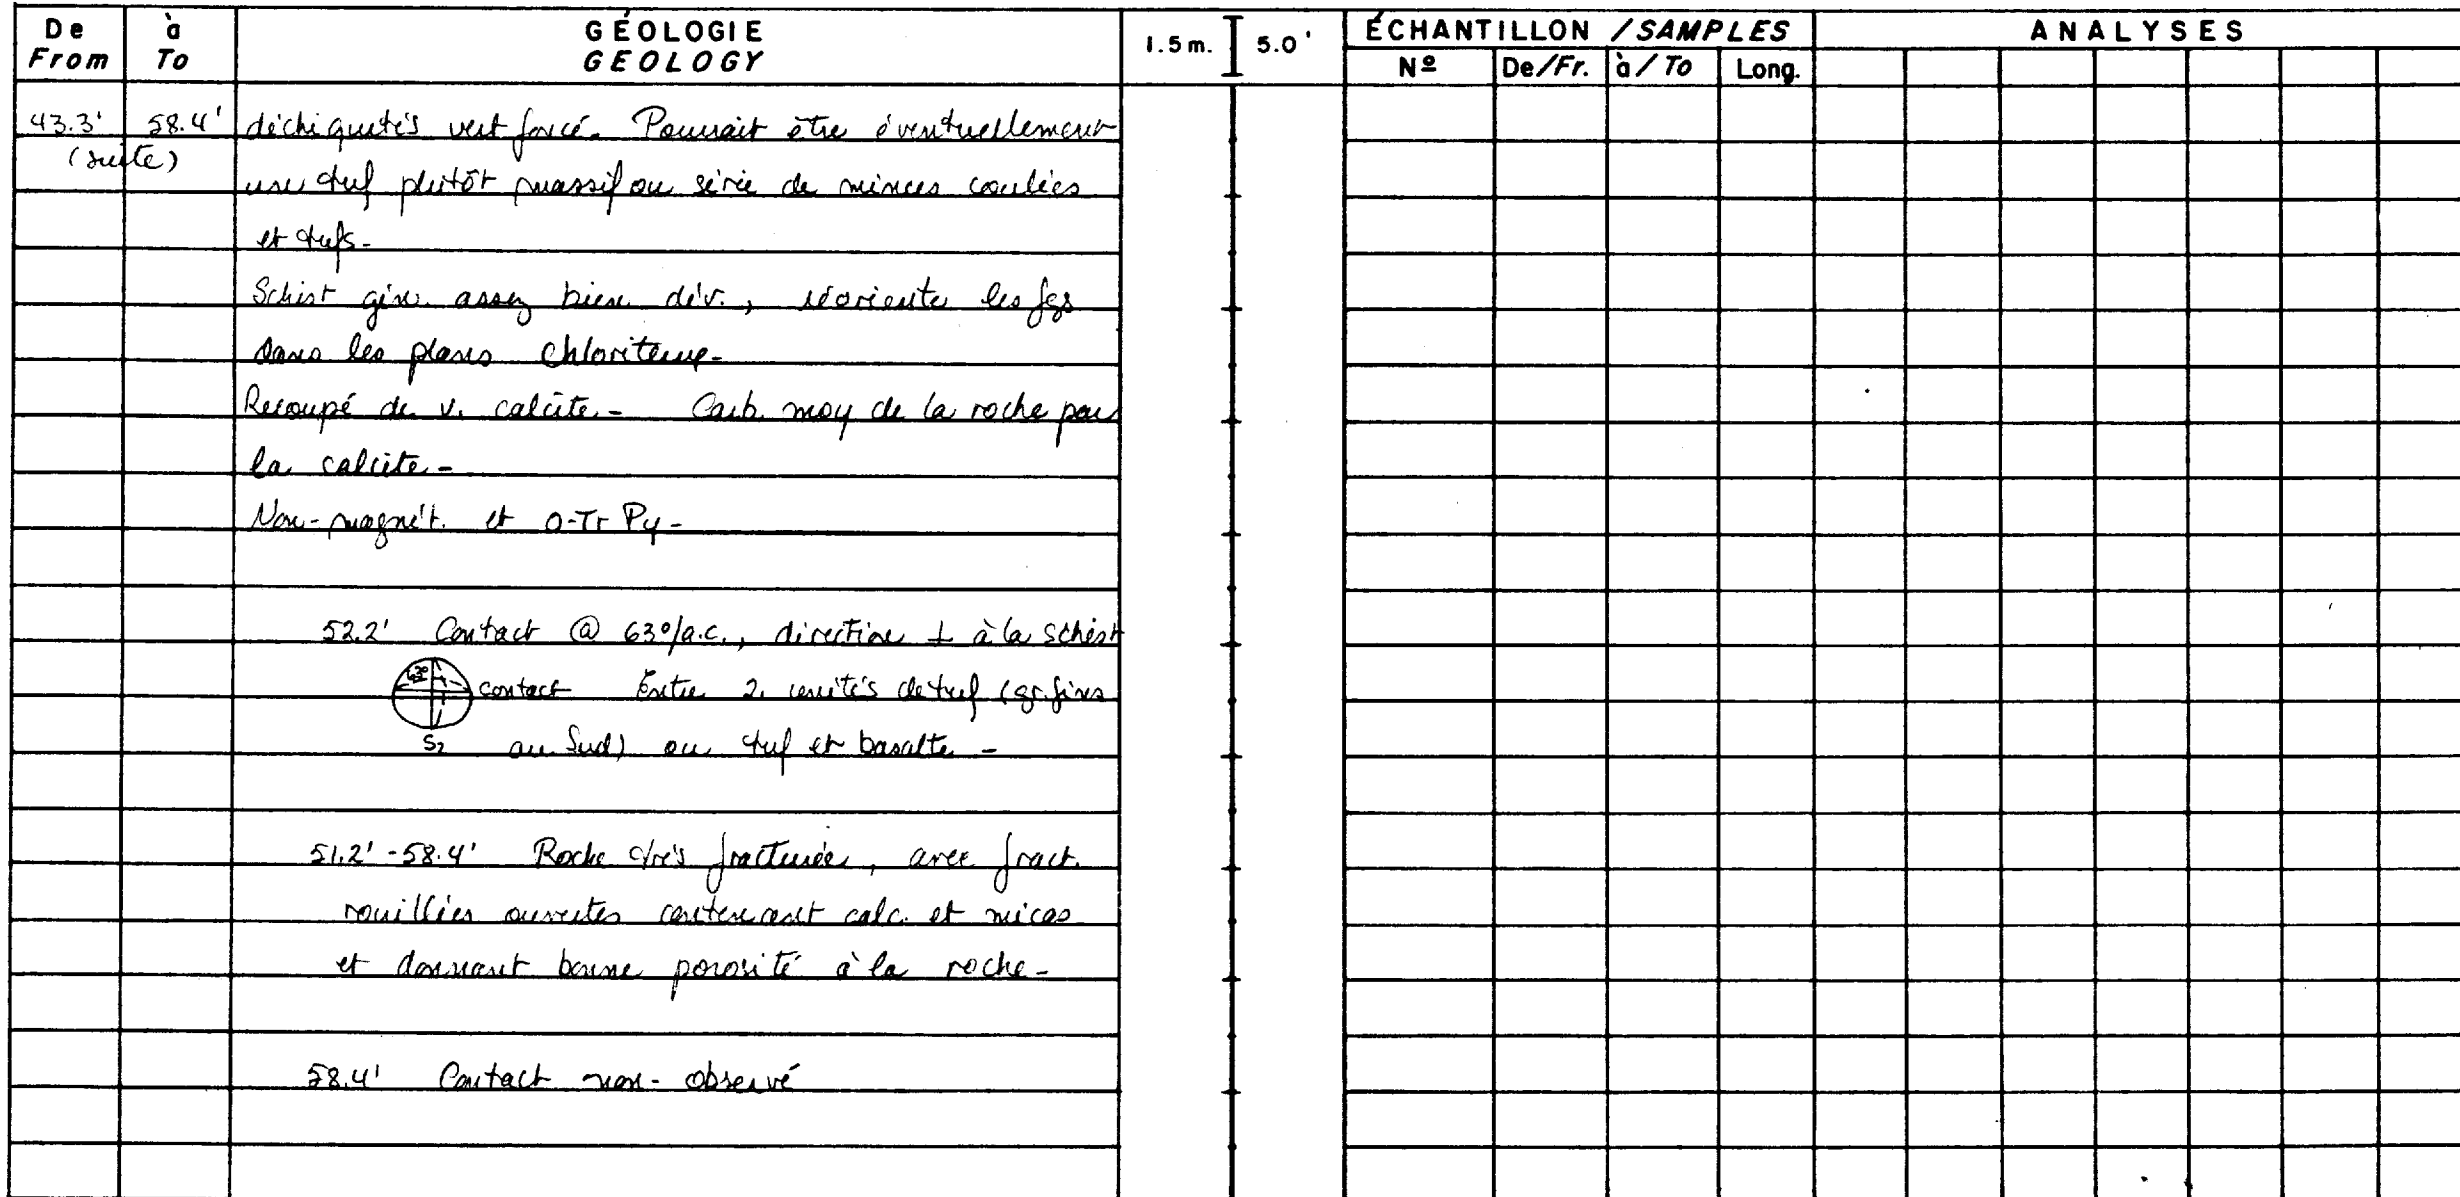 De à GÉOLOGIE 1.5 m. 5.0' ÉCHANTILLON / SAMPLES ANALYSES
From To GEOLOGY Nº De/Fr. à/To Long.
43.3' 58.4' déchiquetés vert foncé. Pourrait être éventuellement
(suite)
une tuf plutôt massif ou série de minces coulées
et tufs-
Schist gén. assez bien dév., réoriente les fgs
dans les plans chloriteux-
Recoupé de v. calcite- Carb. moy de la roche par
la calcite-
Non-magnét. et 0-Tr Py-
52.2' Contact @ 63°/a.c., direction ⊥ à la schist
contact Entre 2 unités de tuf (gr. fins
S2 au Sud) ou tuf et basalte-
51.2'-58.4' Roche très fracturée, avec fract.
rouillées ouvertes contenant calc. et micas
et donnant bonne porosité à la roche-
58.4' Contact non-observé